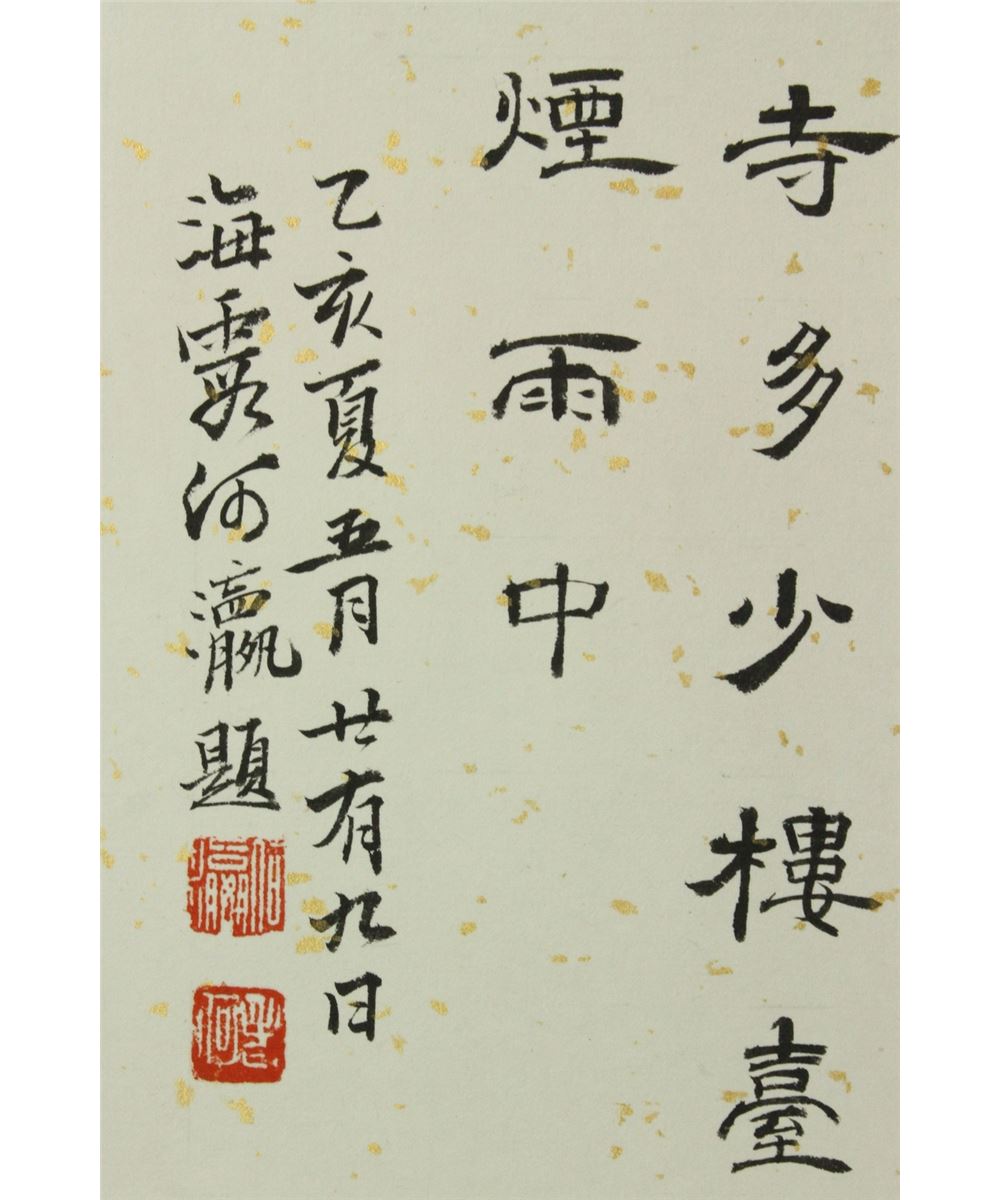 寺多少樓臺
煙雨中
乙亥夏五月廿有九日
海霞何瀛題